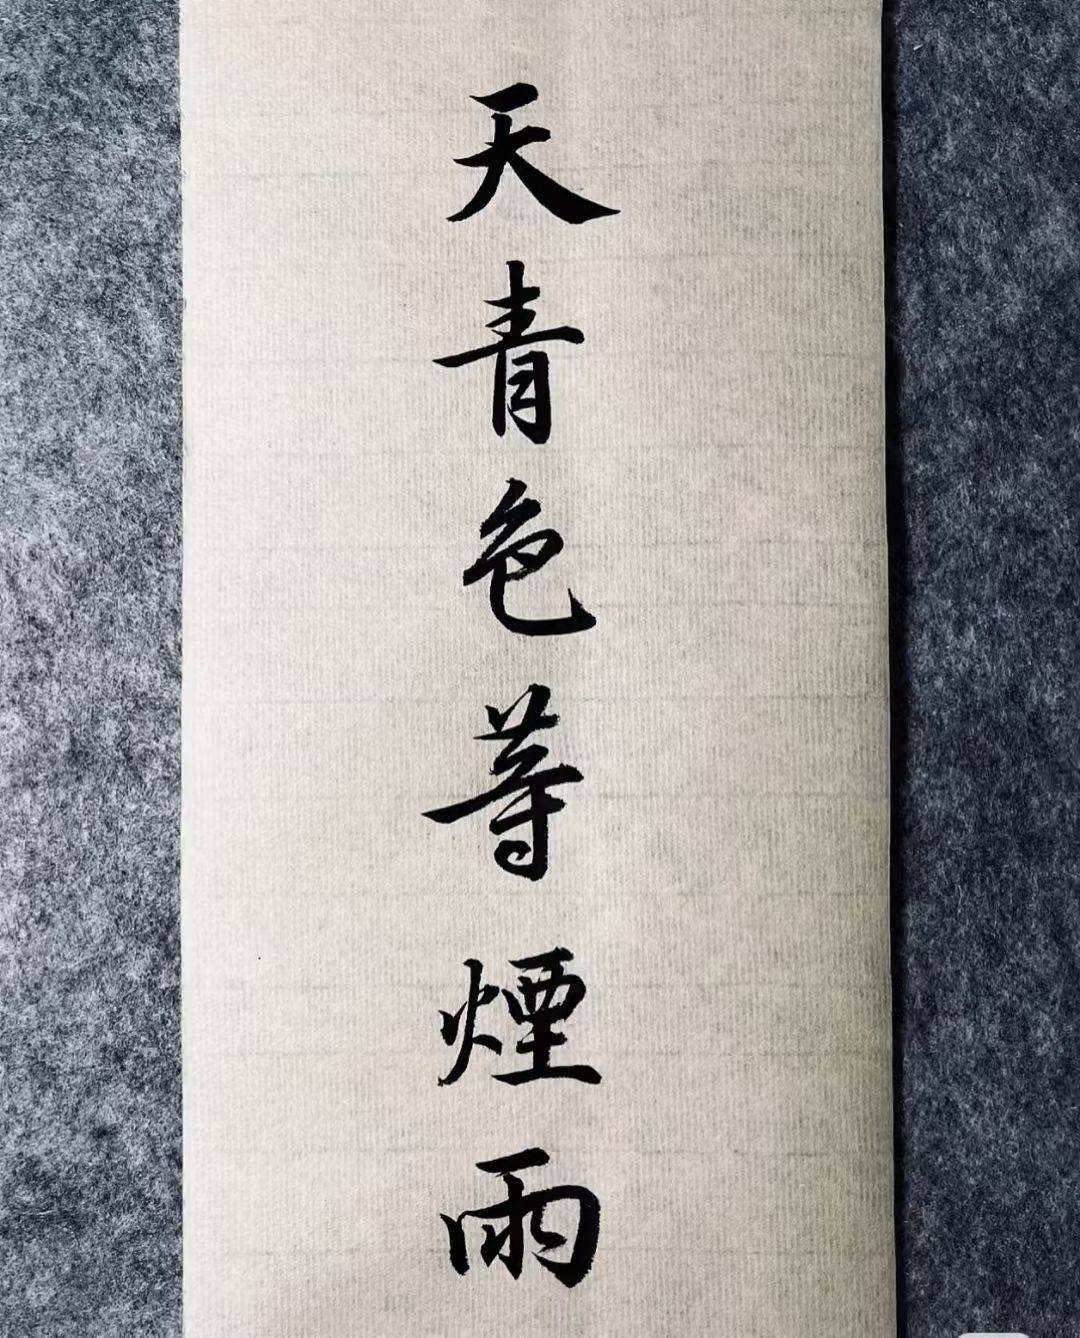 天青色等煙雨